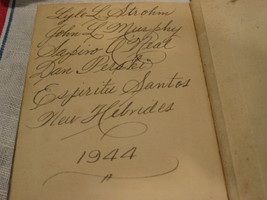 Lyle L Strohm
John L Murphy
Sapiro O'Neal
Dan Perpki
Espiritu Santos
New Hebrides
1944